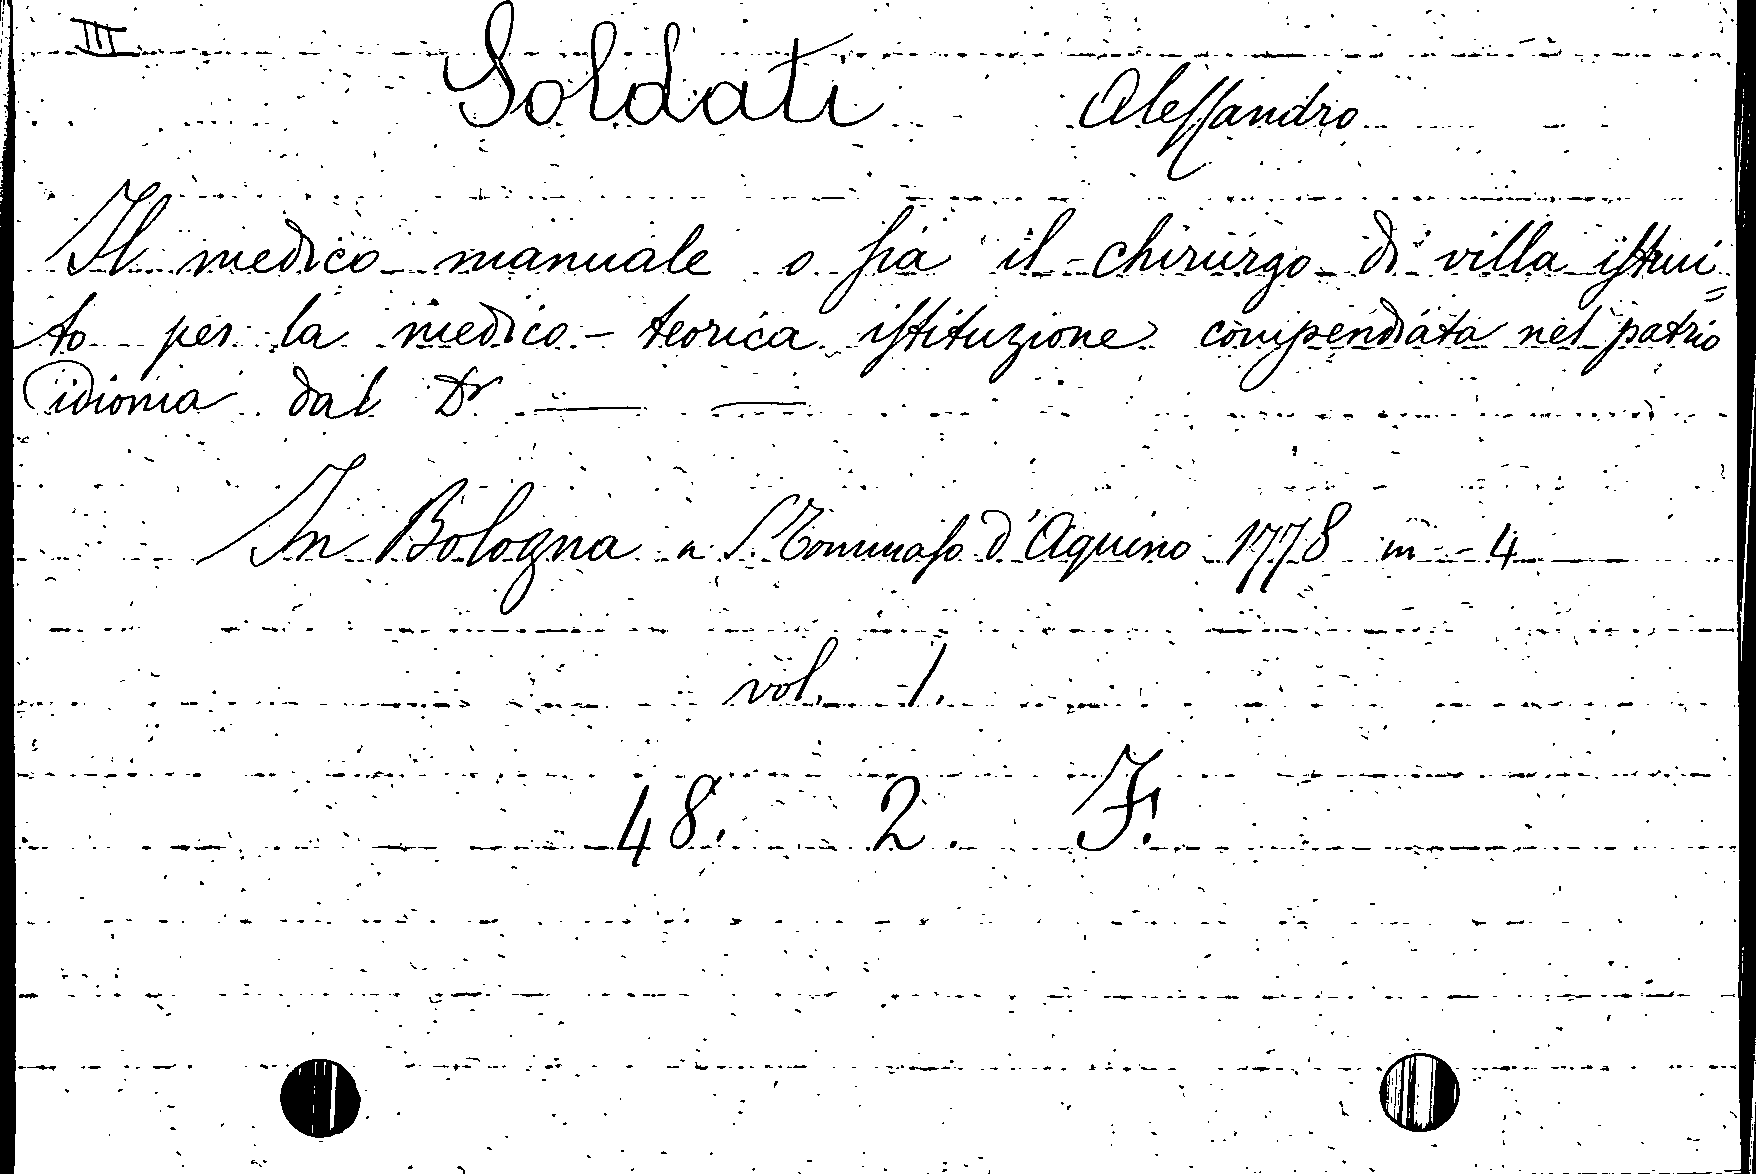 III
Soldati Aleſsandro
Il medico manuale o ſia il chirurgo di villa iſtrui=
to per la medico-teorica iſtituzione compendiata nel patrio
idioma dal Dr — —
In Bologna a S. Tommaſo d'Aquino 1778 in-4
vol. 1.
48. 2. F.